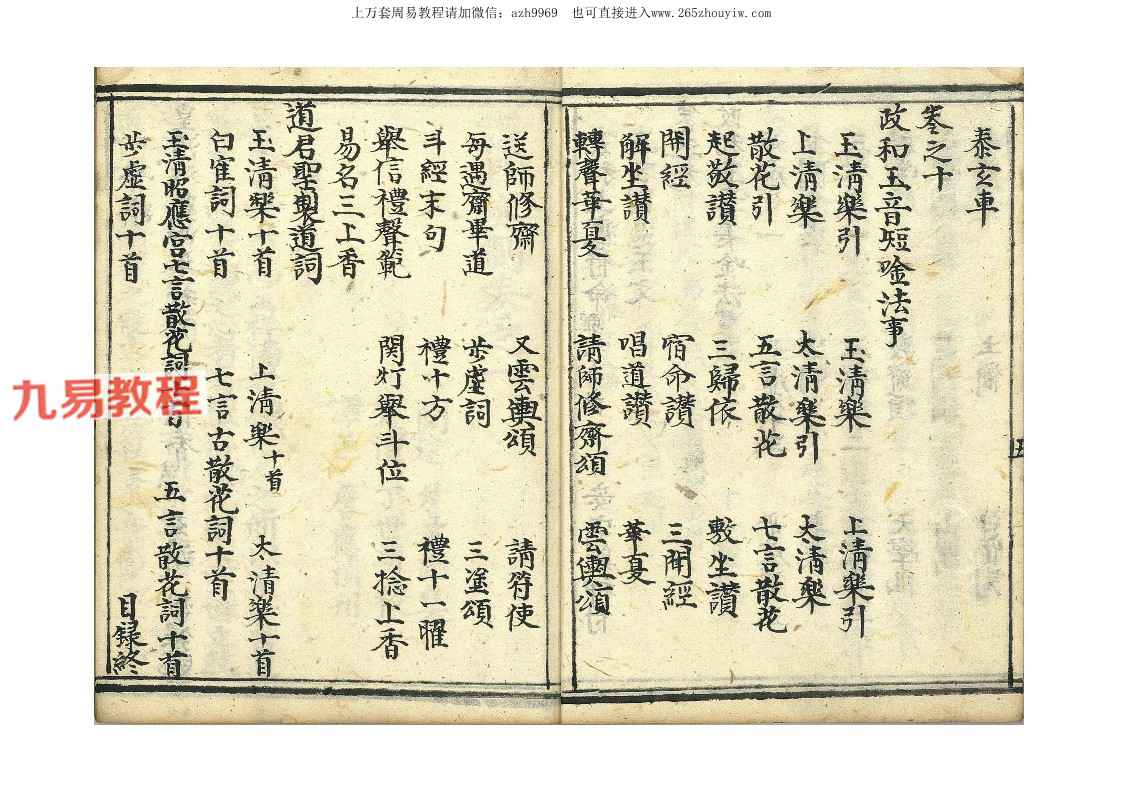 上万套周易教程请加微信：azh9969　也可直接进入www.265zhouyiw.com
泰玄車
卷之十
政和玉音短唫法事
玉清樂引　玉清樂　上清樂引
上清樂　太清樂引　太清樂
散花引　五言散花　七言散花
起敬讃　三歸依　敷坐讃
開經　宿命讃　三開經
解坐讃　唱道讃　華夏
轉聲華夏　請師修齋頌　雲輿頌
五
送師修齋　又雲輿頌　請符使
每遇齋畢道　步虛詞　三塗頌
斗經末句　禮十方　禮十一曜
舉信禮聲範　関灯舉斗位　三捻上香
易名三上香
道君聖製道詞
玉清樂十首　上清樂十首　太清樂十首
白崔詞十首　七言古散花詞十首
玉清昭應宮七言散花詞十首　五言散花詞十首
步虛詞十首　目録終
九易教程